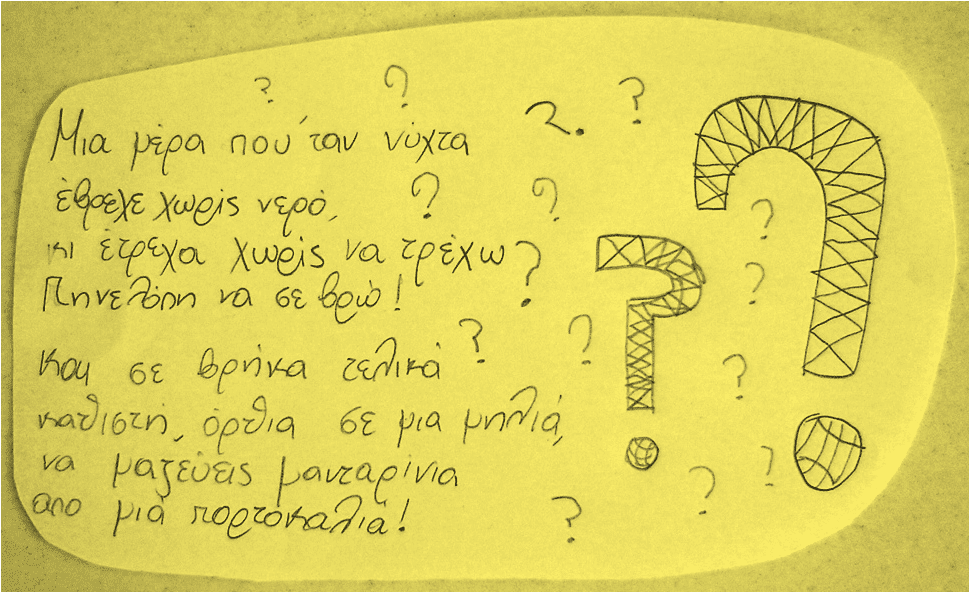 Μια μέρα που΄ταν νύχτα
έβρεχε χωρίς νερό,
κι έτρεχα χωρίς να τρέχω
Πηνελόπη να σε βρω!
Και σε βρήκα τελικά
καθιστή, όρθια σε μια μηλιά,
να μαζεύεις μανταρίνια
απο μιά πορτοκαλιά!